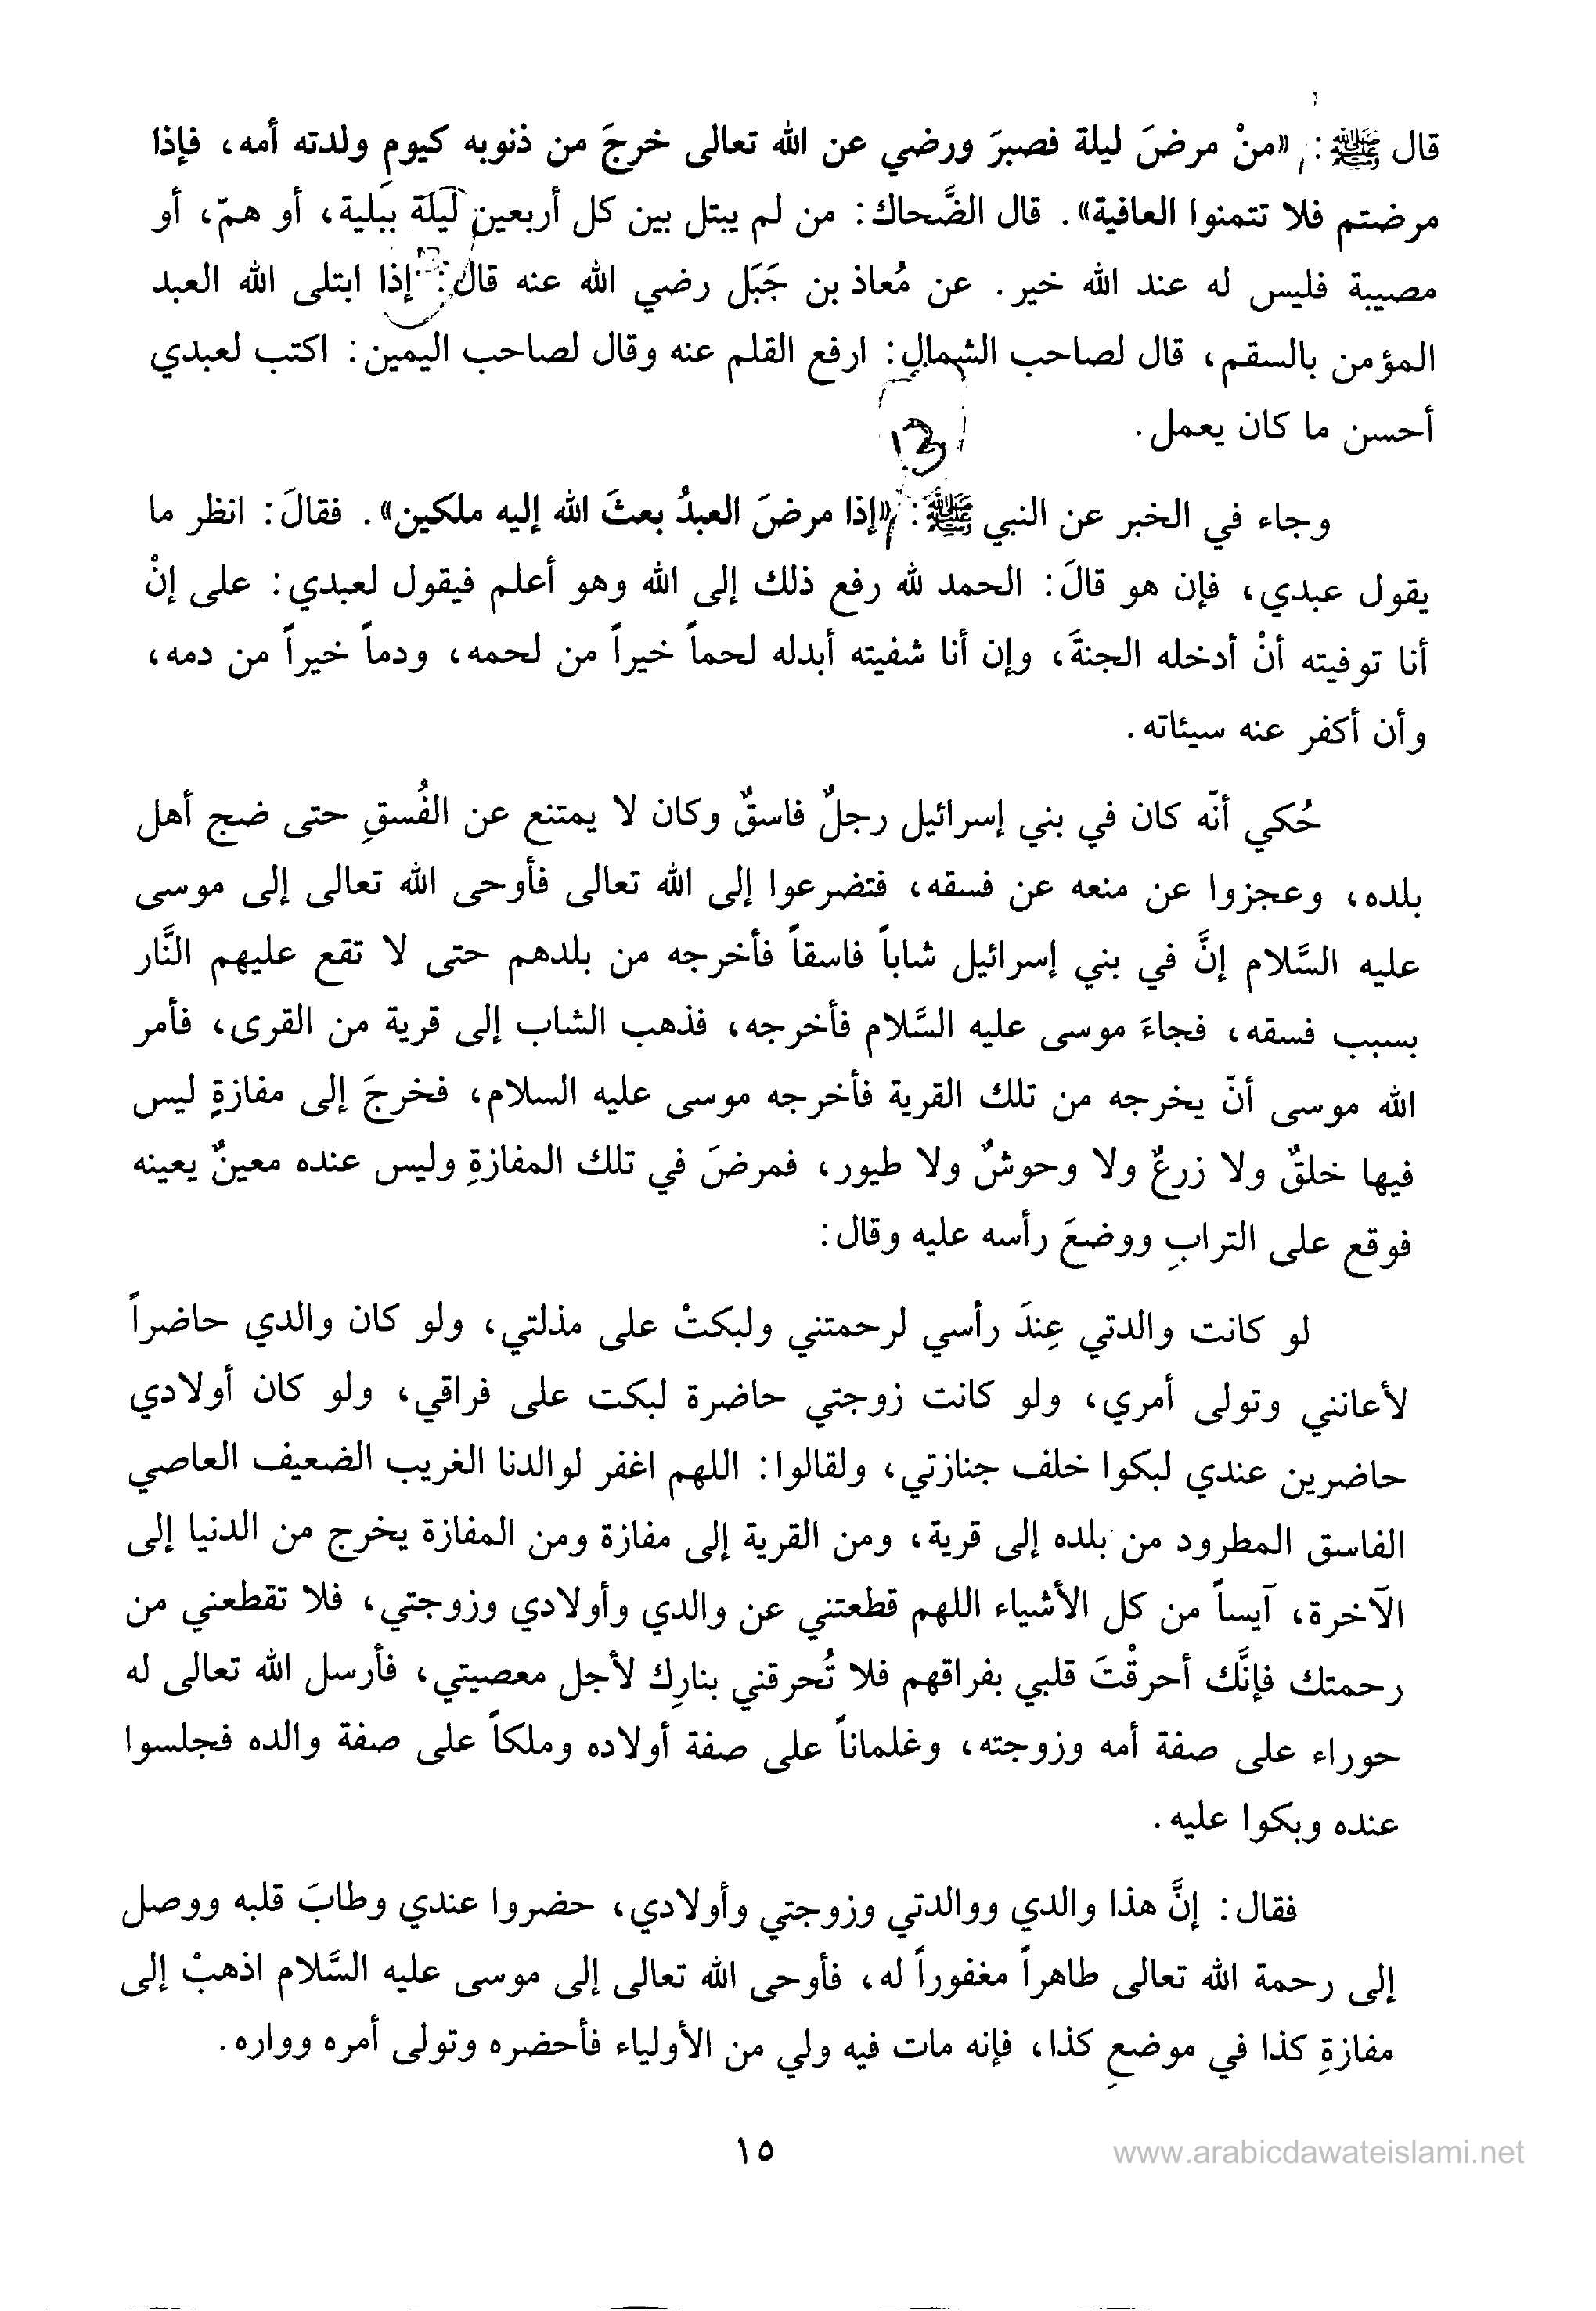 قال ﷺ: «منْ مرضَ ليلة فصبرَ ورضي عن الله تعالى خرجَ من ذنوبه كيومِ ولدته أمه، فإذا
مرضتم فلا تتمنوا العافية». قال الضَّحاك: من لم يبتل بين كل أربعين ليلة ببلية، أو همّ، أو
مصيبة فليس له عند الله خير. عن مُعاذ بن جَبَل رضي الله عنه قال: إذا ابتلى الله العبد
المؤمن بالسقم، قال لصاحب الشمال: ارفع القلم عنه وقال لصاحب اليمين: اكتب لعبدي
أحسن ما كان يعمل.
وجاء في الخبر عن النبي ﷺ: «إذا مرضَ العبدُ بعثَ الله إليه ملكين». فقالَ: انظر ما
يقول عبدي، فإن هو قالَ: الحمد لله رفع ذلك إلى الله وهو أعلم فيقول لعبدي: على إنْ
أنا توفيته أنْ أدخله الجنةَ، وإن أنا شفيته أبدله لحماً خيراً من لحمه، ودماً خيراً من دمه،
وأن أكفر عنه سيئاته.
حُكي أنّه كان في بني إسرائيل رجلٌ فاسقٌ وكان لا يمتنع عن الفُسقِ حتى ضج أهل
بلده، وعجزوا عن منعه عن فسقه، فتضرعوا إلى الله تعالى فأوحى الله تعالى إلى موسى
عليه السَّلام إنَّ في بني إسرائيل شاباً فاسقاً فأخرجه من بلدهم حتى لا تقع عليهم النَّار
بسبب فسقه، فجاءَ موسى عليه السَّلام فأخرجه، فذهب الشاب إلى قرية من القرى، فأمر
الله موسى أنّ يخرجه من تلك القرية فأخرجه موسى عليه السلام، فخرجَ إلى مفازةٍ ليس
فيها خلقٌ ولا زرعٌ ولا وحوشٌ ولا طيور، فمرضَ في تلك المفازةِ وليس عنده معينٌ يعينه
فوقع على الترابِ ووضعَ رأسه عليه وقال:
لو كانت والدتي عِندَ رأسي لرحمتني ولبكتْ على مذلتي، ولو كان والدي حاضراً
لأعانني وتولى أمري، ولو كانت زوجتي حاضرة لبكت على فراقي، ولو كان أولادي
حاضرين عندي لبكوا خلف جنازتي، ولقالوا: اللهم اغفر لوالدنا الغريب الضعيف العاصي
الفاسق المطرود من بلده إلى قرية، ومن القرية إلى مفازة ومن المفازة يخرج من الدنيا إلى
الآخرة، آيساً من كل الأشياء اللهم قطعتني عن والدي وأولادي وزوجتي، فلا تقطعني من
رحمتك فإنَّك أحرقْتَ قلبي بفراقهم فلا تُحرقني بنارِك لأجل معصيتي، فأرسل الله تعالى له
حوراء على صفة أمه وزوجته، وغلماناً على صفة أولاده وملكاً على صفة والده فجلسوا
عنده وبكوا عليه.
فقال: إنَّ هذا والدي ووالدتي وزوجتي وأولادي، حضروا عندي وطابَ قلبه ووصل
إلى رحمة الله تعالى طاهراً مغفوراً له، فأوحى الله تعالى إلى موسى عليه السَّلام اذهبْ إلى
مفازةِ كذا في موضعِ كذا، فإنه مات فيه ولي من الأولياء فأحضره وتولى أمره وواره.
١٥
www.arabicdawateislami.net